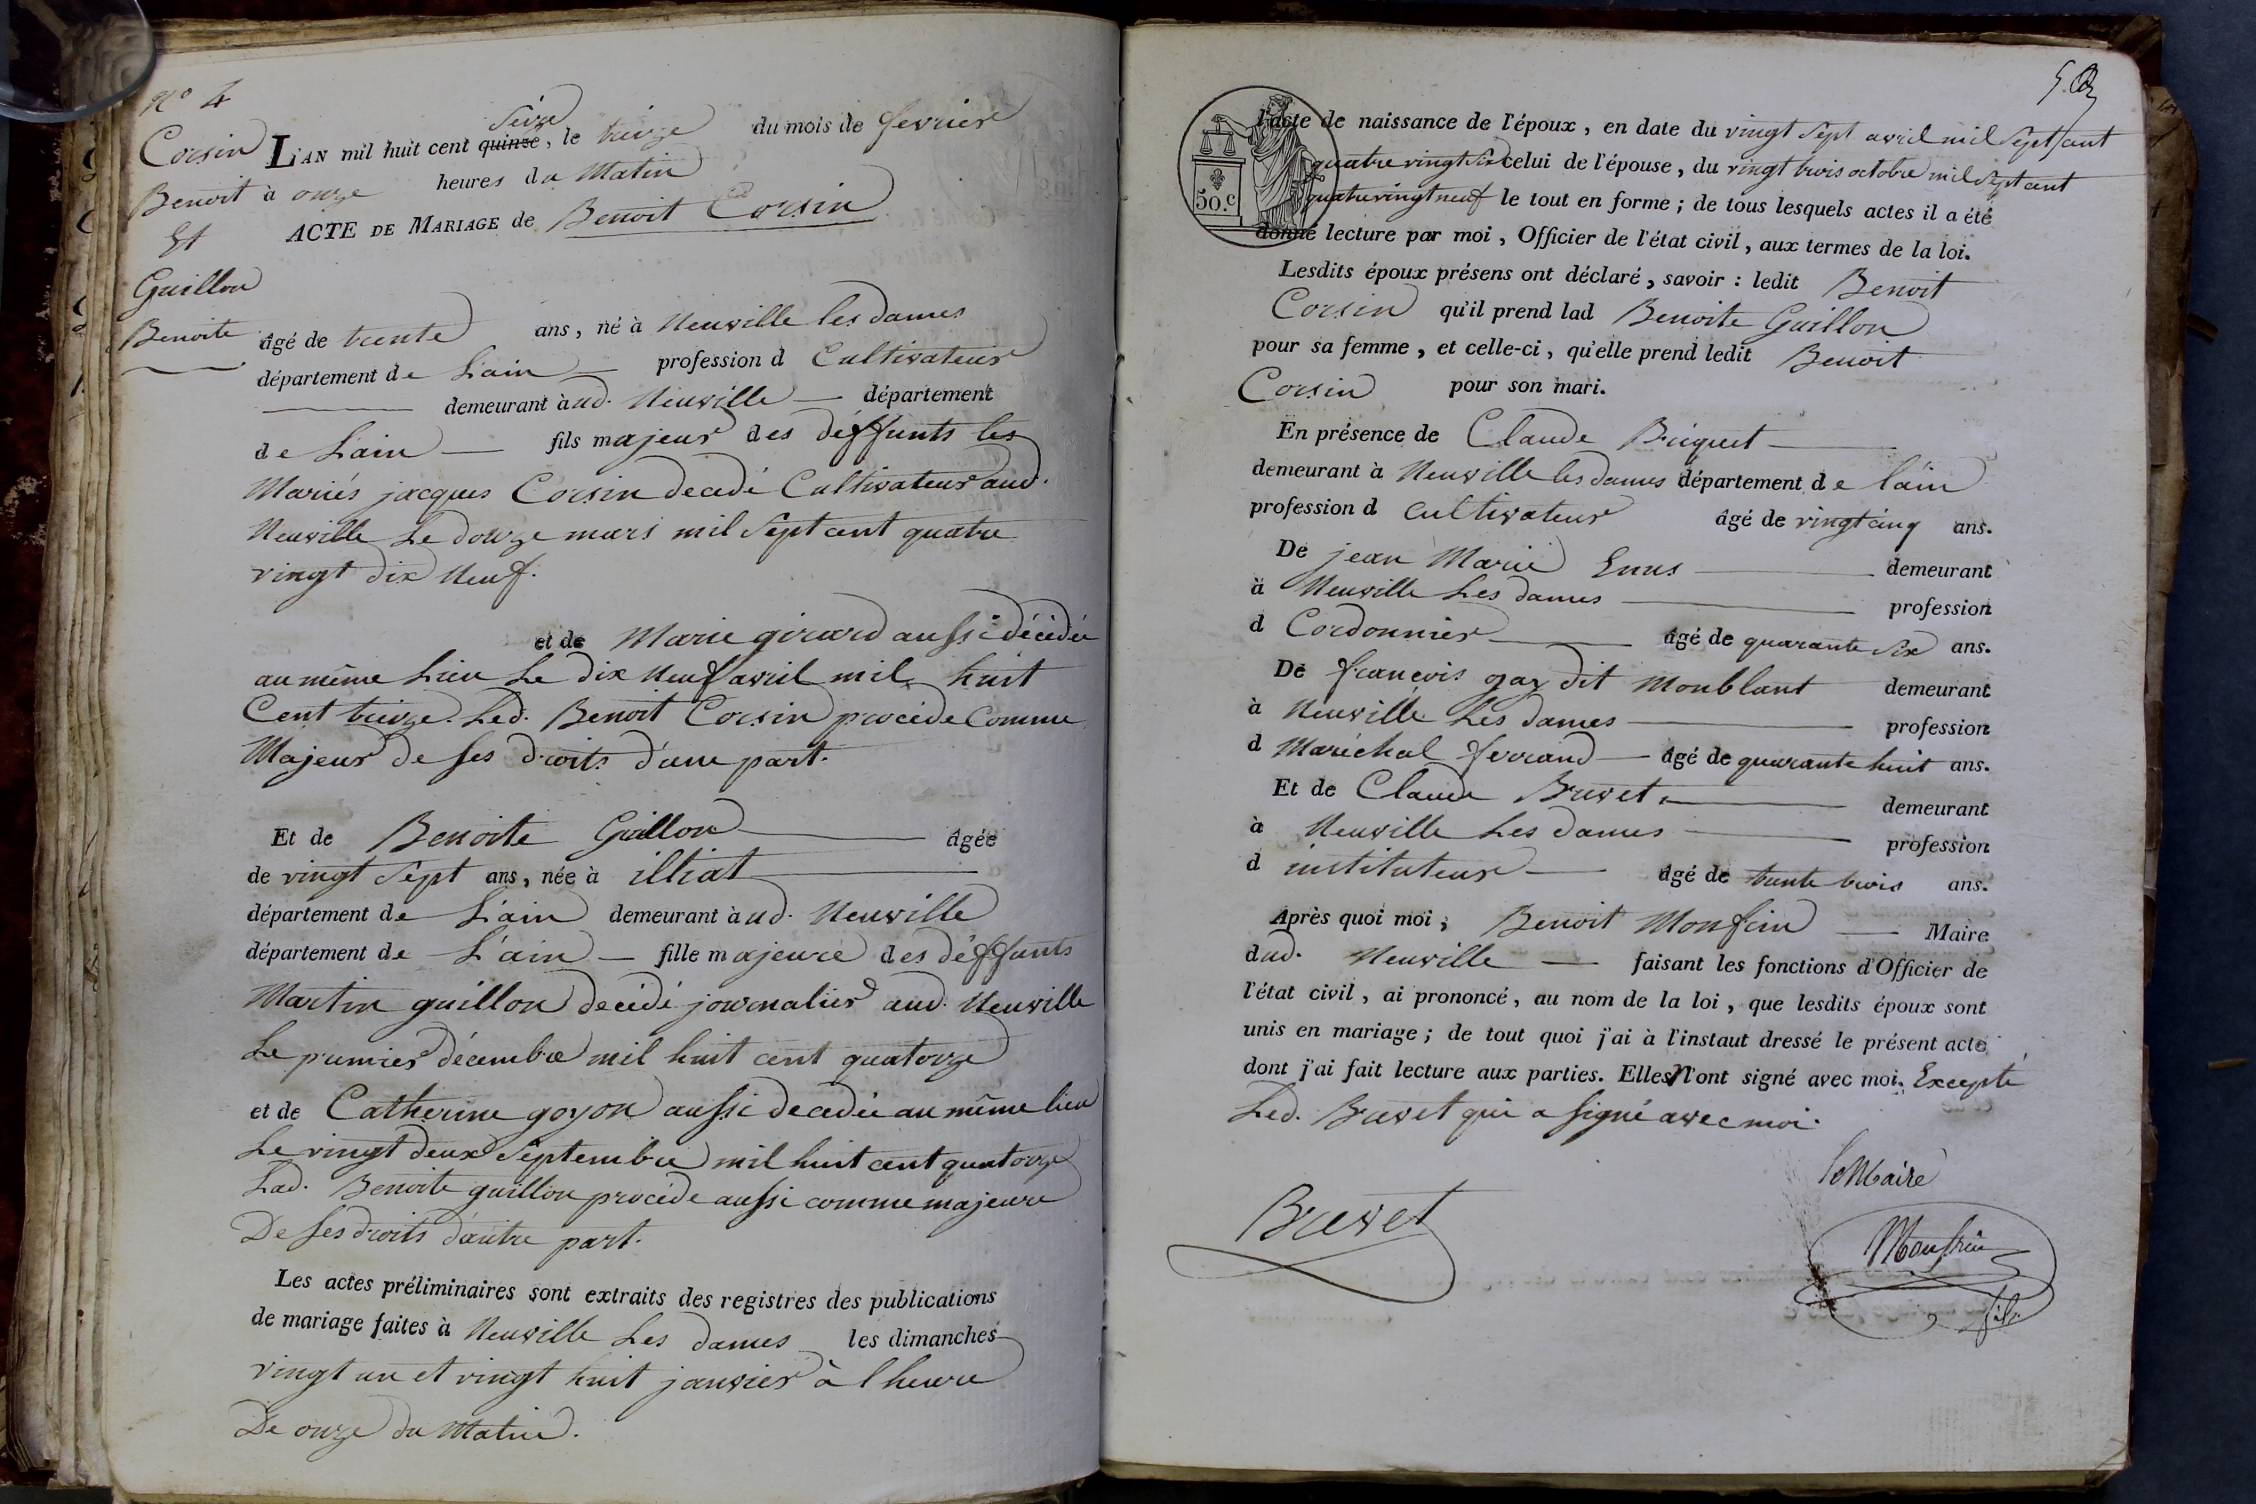 N° 4
Corsin
Benoit
Et
Guillon
Benoite
L'AN mil huit cent quinze seize, le treize du mois de fevrier
à onze heures du Matin
ACTE DE MARIAGE de Benoit Corsin
âgé de trente ans, né à Neuville les dames
département de L'ain profession d Cultivateur
demeurant à ud. Neuville département
de L'ain fils majeur des deffunts les
Mariés jacques Corsin decedé Cultivateur aud.
Neuville Le douze mars mil Sept cent quatre
vingt dix Neuf.
et de Marie girard aussi décédée
au même Lieu Le dix Neuf avril mil huit
Cent treize. Led. Benoit Corsin procede Comme
Majeur de ses droits d'une part.
Et de Benoite Guillon âgée
de vingt Sept ans, née à illiat
département de L'ain demeurant à ud. Neuville
département de L'ain fille majeure des deffunts
Martin guillon decédé journalier aud. Neuville
Le premier décembre mil huit cent quatorze
et de Catherine goyon aussi decedée au même lieu
Le vingt deux Septembre mil huit cent quatorze
Lad. Benoite guillon procède aussi comme majeure
De ses droits d'autre part.
Les actes préliminaires sont extraits des registres des publications
de mariage faites à Neuville Les dames les dimanches
vingt un et vingt huit janvier à l heure
De onze du Matin.
50.c
l'acte de naissance de l'époux, en date du vingt Sept avril mil Sept cent
quatre vingt six celui de l'épouse, du vingt trois octobre mil Sept cent
quatre vingt neuf le tout en forme; de tous lesquels actes il a été
donné lecture par moi, Officier de l'état civil, aux termes de la loi.
Lesdits époux présens ont déclaré, savoir: ledit Benoit
Corsin qu'il prend lad Benoite Guillon
pour sa femme, et celle-ci, qu'elle prend ledit Benoit
Corsin pour son mari.
En présence de Claude Briquet
demeurant à Neuville les dames département de l'ain
profession d cultivateur âgé de vingt cinq ans.
De jean Marie demeurant
à Neuville Les dames profession
d Cordonnier âgé de quarante Six ans.
De françois gay dit Monblant demeurant
à Neuville Les dames profession
d Maréchal ferrand âgé de quarante huit ans.
Et de Claude Buvet demeurant
à Neuville Les dames profession
d instituteur âgé de trente trois ans.
Après quoi moi, Benoit Monfrin Maire
dud. Neuville faisant les fonctions d'Officier de
l'état civil, ai prononcé, au nom de la loi, que lesdits époux sont
unis en mariage; de tout quoi j'ai à l'instaut dressé le présent acte
dont j'ai fait lecture aux parties. Elles n'ont signé avec moi. Excepté
Led. Buvet qui a signé avec moi.
Le Maire
Buvet
Monfrin